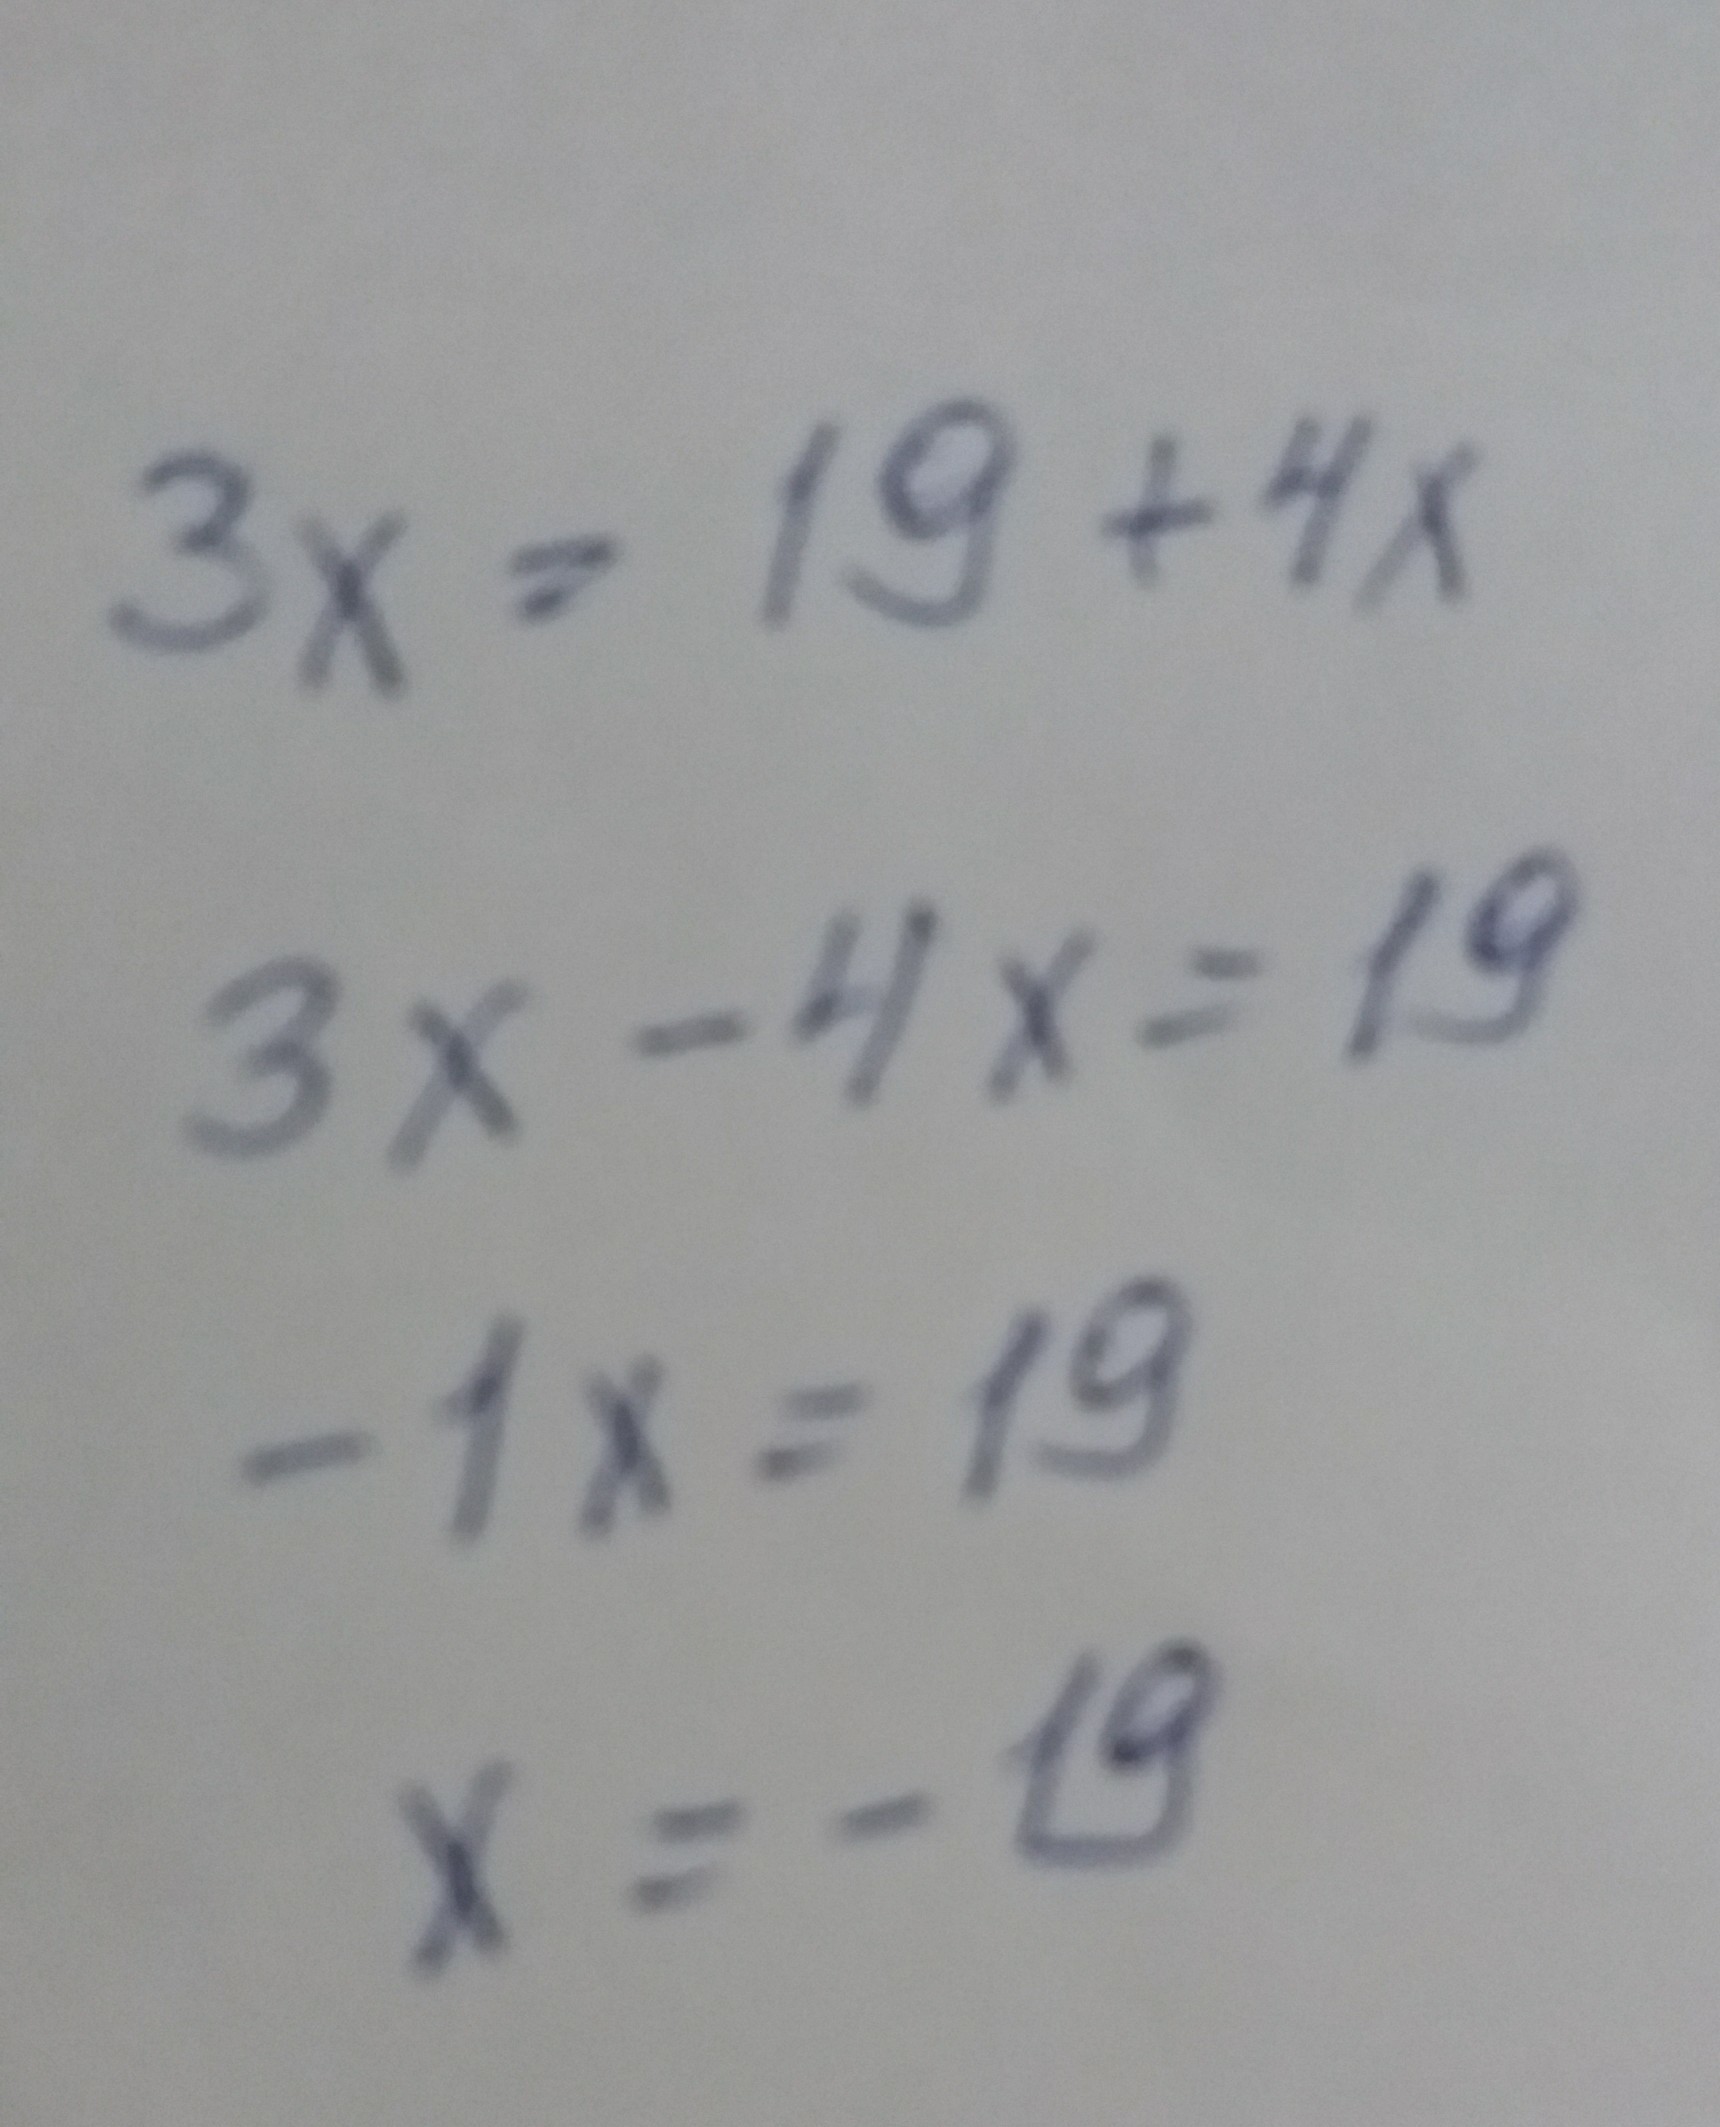 3x = 19 + 4x
3x - 4x = 19
- 1x = 19
x = - 19